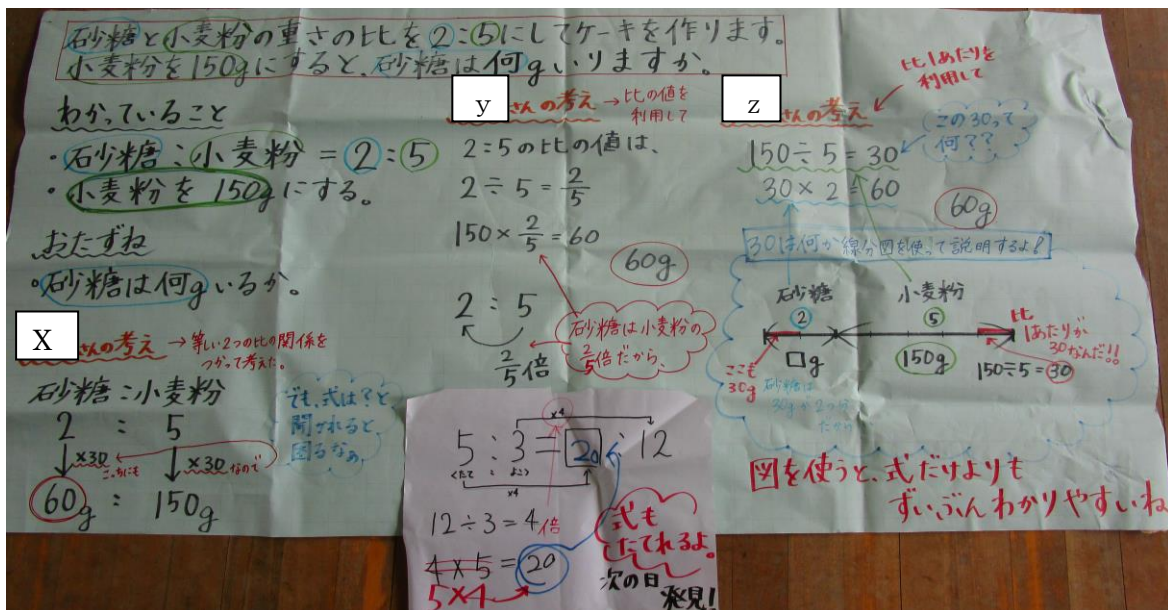 砂糖と小麦粉の重さの比を2:5にしてケーキを作ります。
小麦粉を150gにすると、砂糖は何gいりますか。
わかっていること
・砂糖:小麦粉=2:5
・小麦粉を150gにする。
おたずね
・砂糖は何gいるか。
X
さんの考え→等しい2つの比の関係を
つかって考えた。
砂糖:小麦粉
2 : 5
×30 こっちにも ×30 なので
60g : 150g
でも、式は?と
聞かれると、
困るなぁ
y
さんの考え→比の値を
利用して
2:5の比の値は、
2÷5=2/5
150×2/5=60
60g
2 : 5
2/5倍
砂糖は小麦粉の
2/5倍だから、
×4
5:3=20:12
たて : よこ
×4
12÷3=4倍
4×5=20
5×4
式も
たてれるよ。
次の日
発見!
z
さんの考え
比1あたりを
利用して
150÷5=30
30×2=60
この30って
何??
60g
30は何か線分図を使って説明するよ!
砂糖 小麦粉
2 5
□g 150g
ここも
30g
砂糖は
30gが2つ分
だから
比
1あたりが
30なんだ!!
150÷5=30
図を使うと、式だけよりも
ずいぶんわかりやすいね